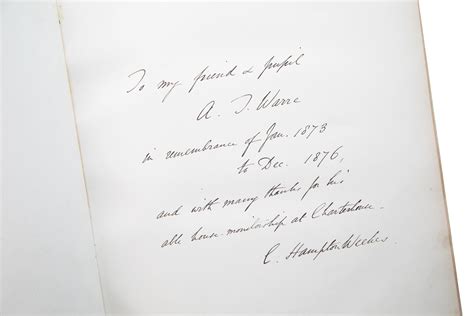 To my friend & pupil
A. T. Warre
in remembrance of Jan. 1873
to Dec. 1876,
and with many thanks for his
able house-monitorship at Charterhouse.
C. Hampton Weekes.